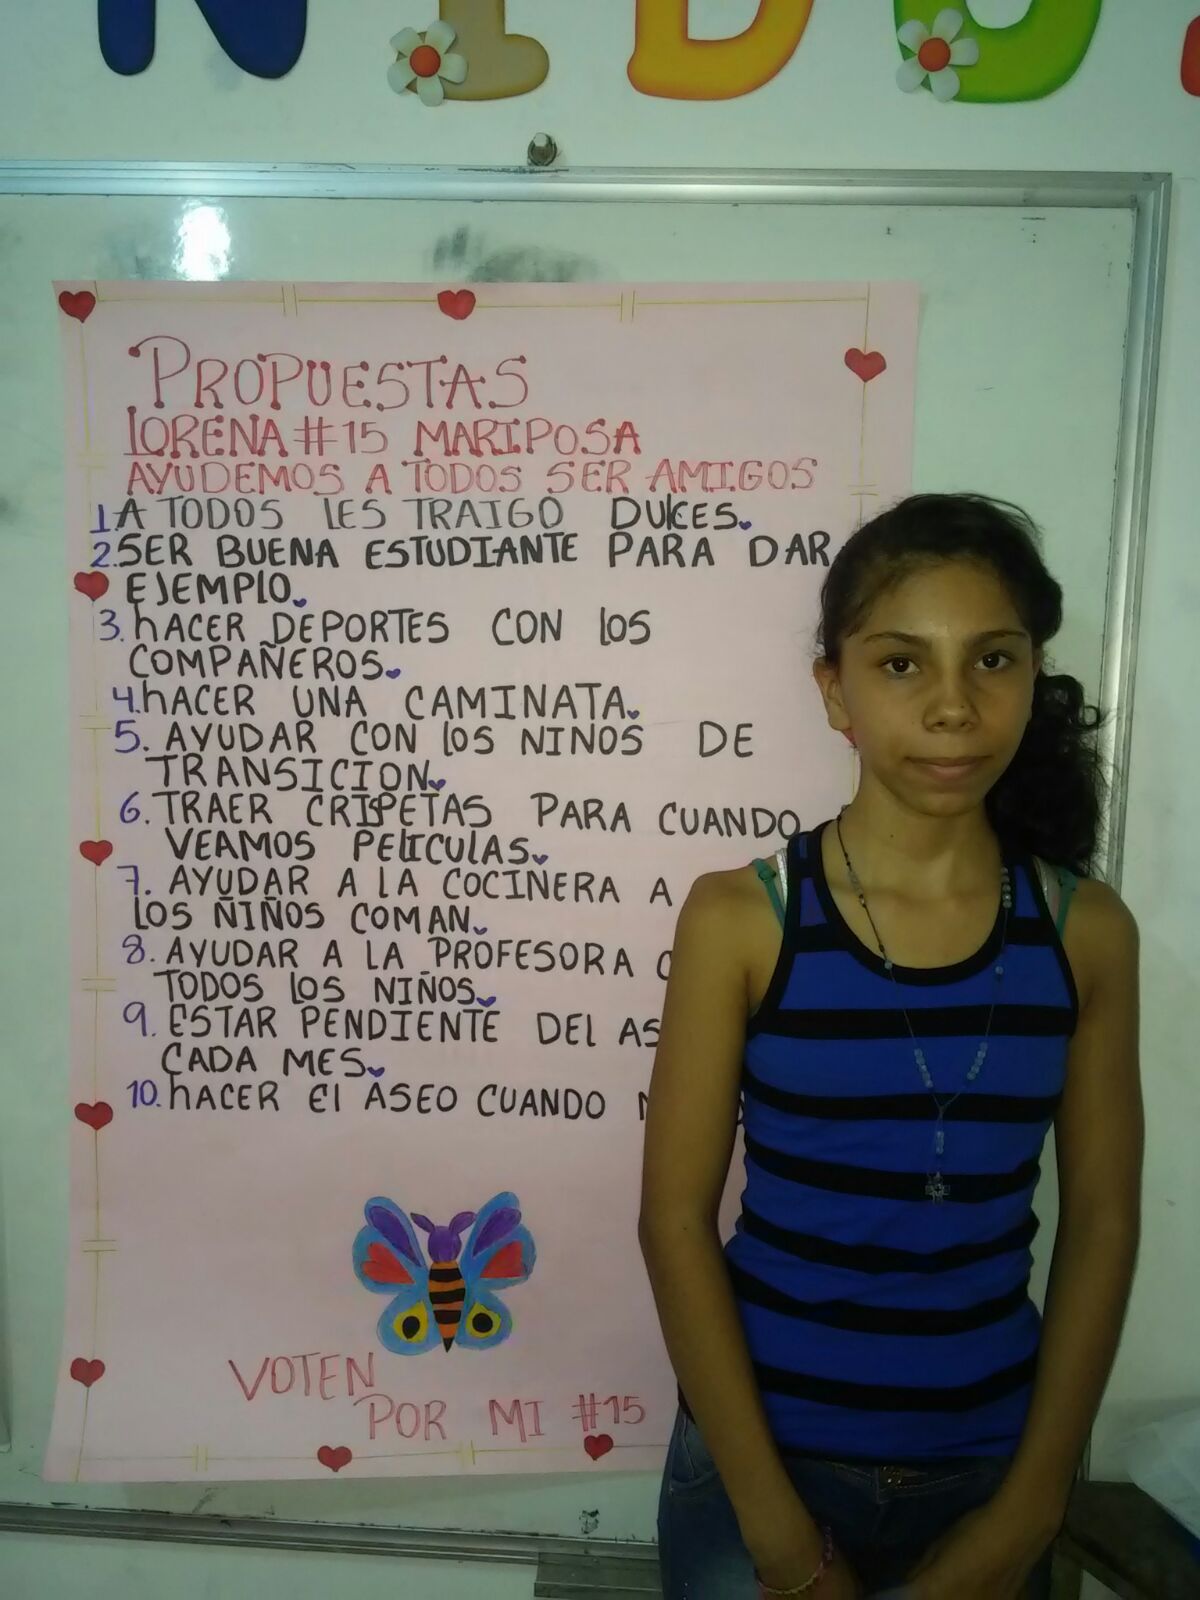 NIDOS
PROPUESTAS
LORENA #15 MARIPOSA
AYUDEMOS A TODOS SER AMIGOS
1. A TODOS LES TRAIGO DULCES.
2. SER BUENA ESTUDIANTE PARA DAR
EJEMPLO.
3. hACER DEPORTES CON LOS
COMPAÑEROS.
4. hACER UNA CAMINATA.
5. AYUDAR CON LOS NINOS DE
TRANSICION.
6. TRAER CRISPETAS PARA CUANDO
VEAMOS PELICULAS.
7. AYUDAR A LA COCINERA A
LOS ÑIÑOS COMAN.
8. AYUDAR A LA PROFESORA
TODOS LOS NIÑOS.
9. ESTAR PENDIENTE DEL AS
CADA MES.
10. hACER El ASEO CUANDO
VOTEN
POR MI #15